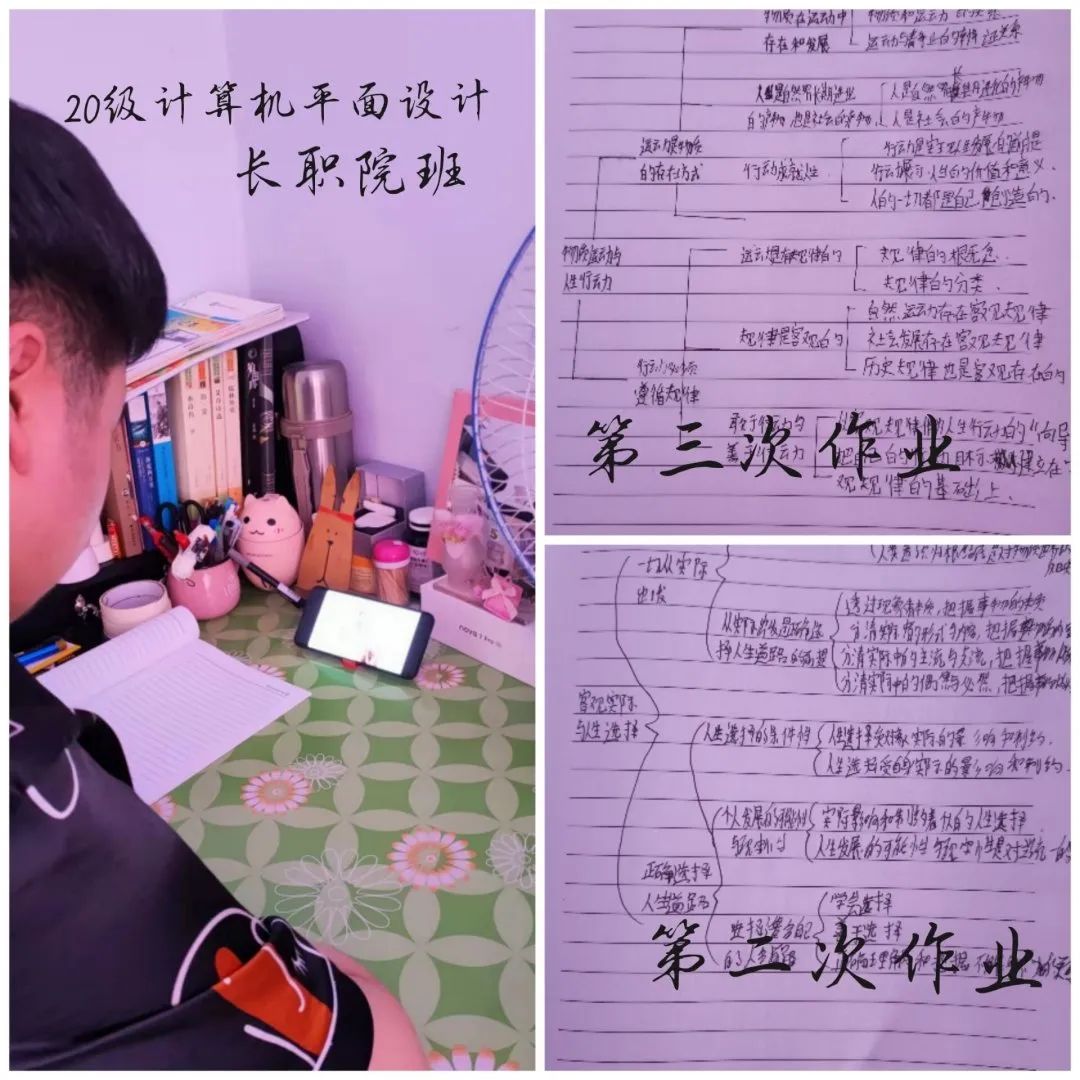 20级计算机平面设计
长职院班
nova 7
物质在运动中
存在和发展
物质和运动的关系
运动与静止的辩证关系
人是自然界长期进化
的产物也是社会的产物
人是自然界长期进化的产物
人是社会的产物
运动是物质
的存在方式
行动成就人生
行动是实现人生发展的前提
行动展示人生的价值和意义.
人的一切都是自己创造的.
物质运动与
人生行动
运动是有规律的
规律的概念.
规律的分类.
规律是客观的
自然运动存在客观规律
社会发展存在客观规律
历史规律也是客观存在的
行动必须
遵循规律
敢于行动与
善于行动
人生行动的“向导
建立在
观规律的基础上.
第三次作业
一切从实际
出发
透过现象看本质,把握事物的本质
分清实际的形式与内容,把握
分清实际中的主流与支流,把握
分清实际中的偶然与必然,把握
择人生道路的前提
客观实际
与人生选择
人生选择的条件性
人生选择受对象实际的影响和制约.
人生选择受自身实际的影响和制约.
个人发展的可能性
实际影响和制约着个人的人生选择.
人生发展的可能性与现实性是对立统一的
正确选择
人生道路
学会选择
善于选择
的人生道路
第二次作业